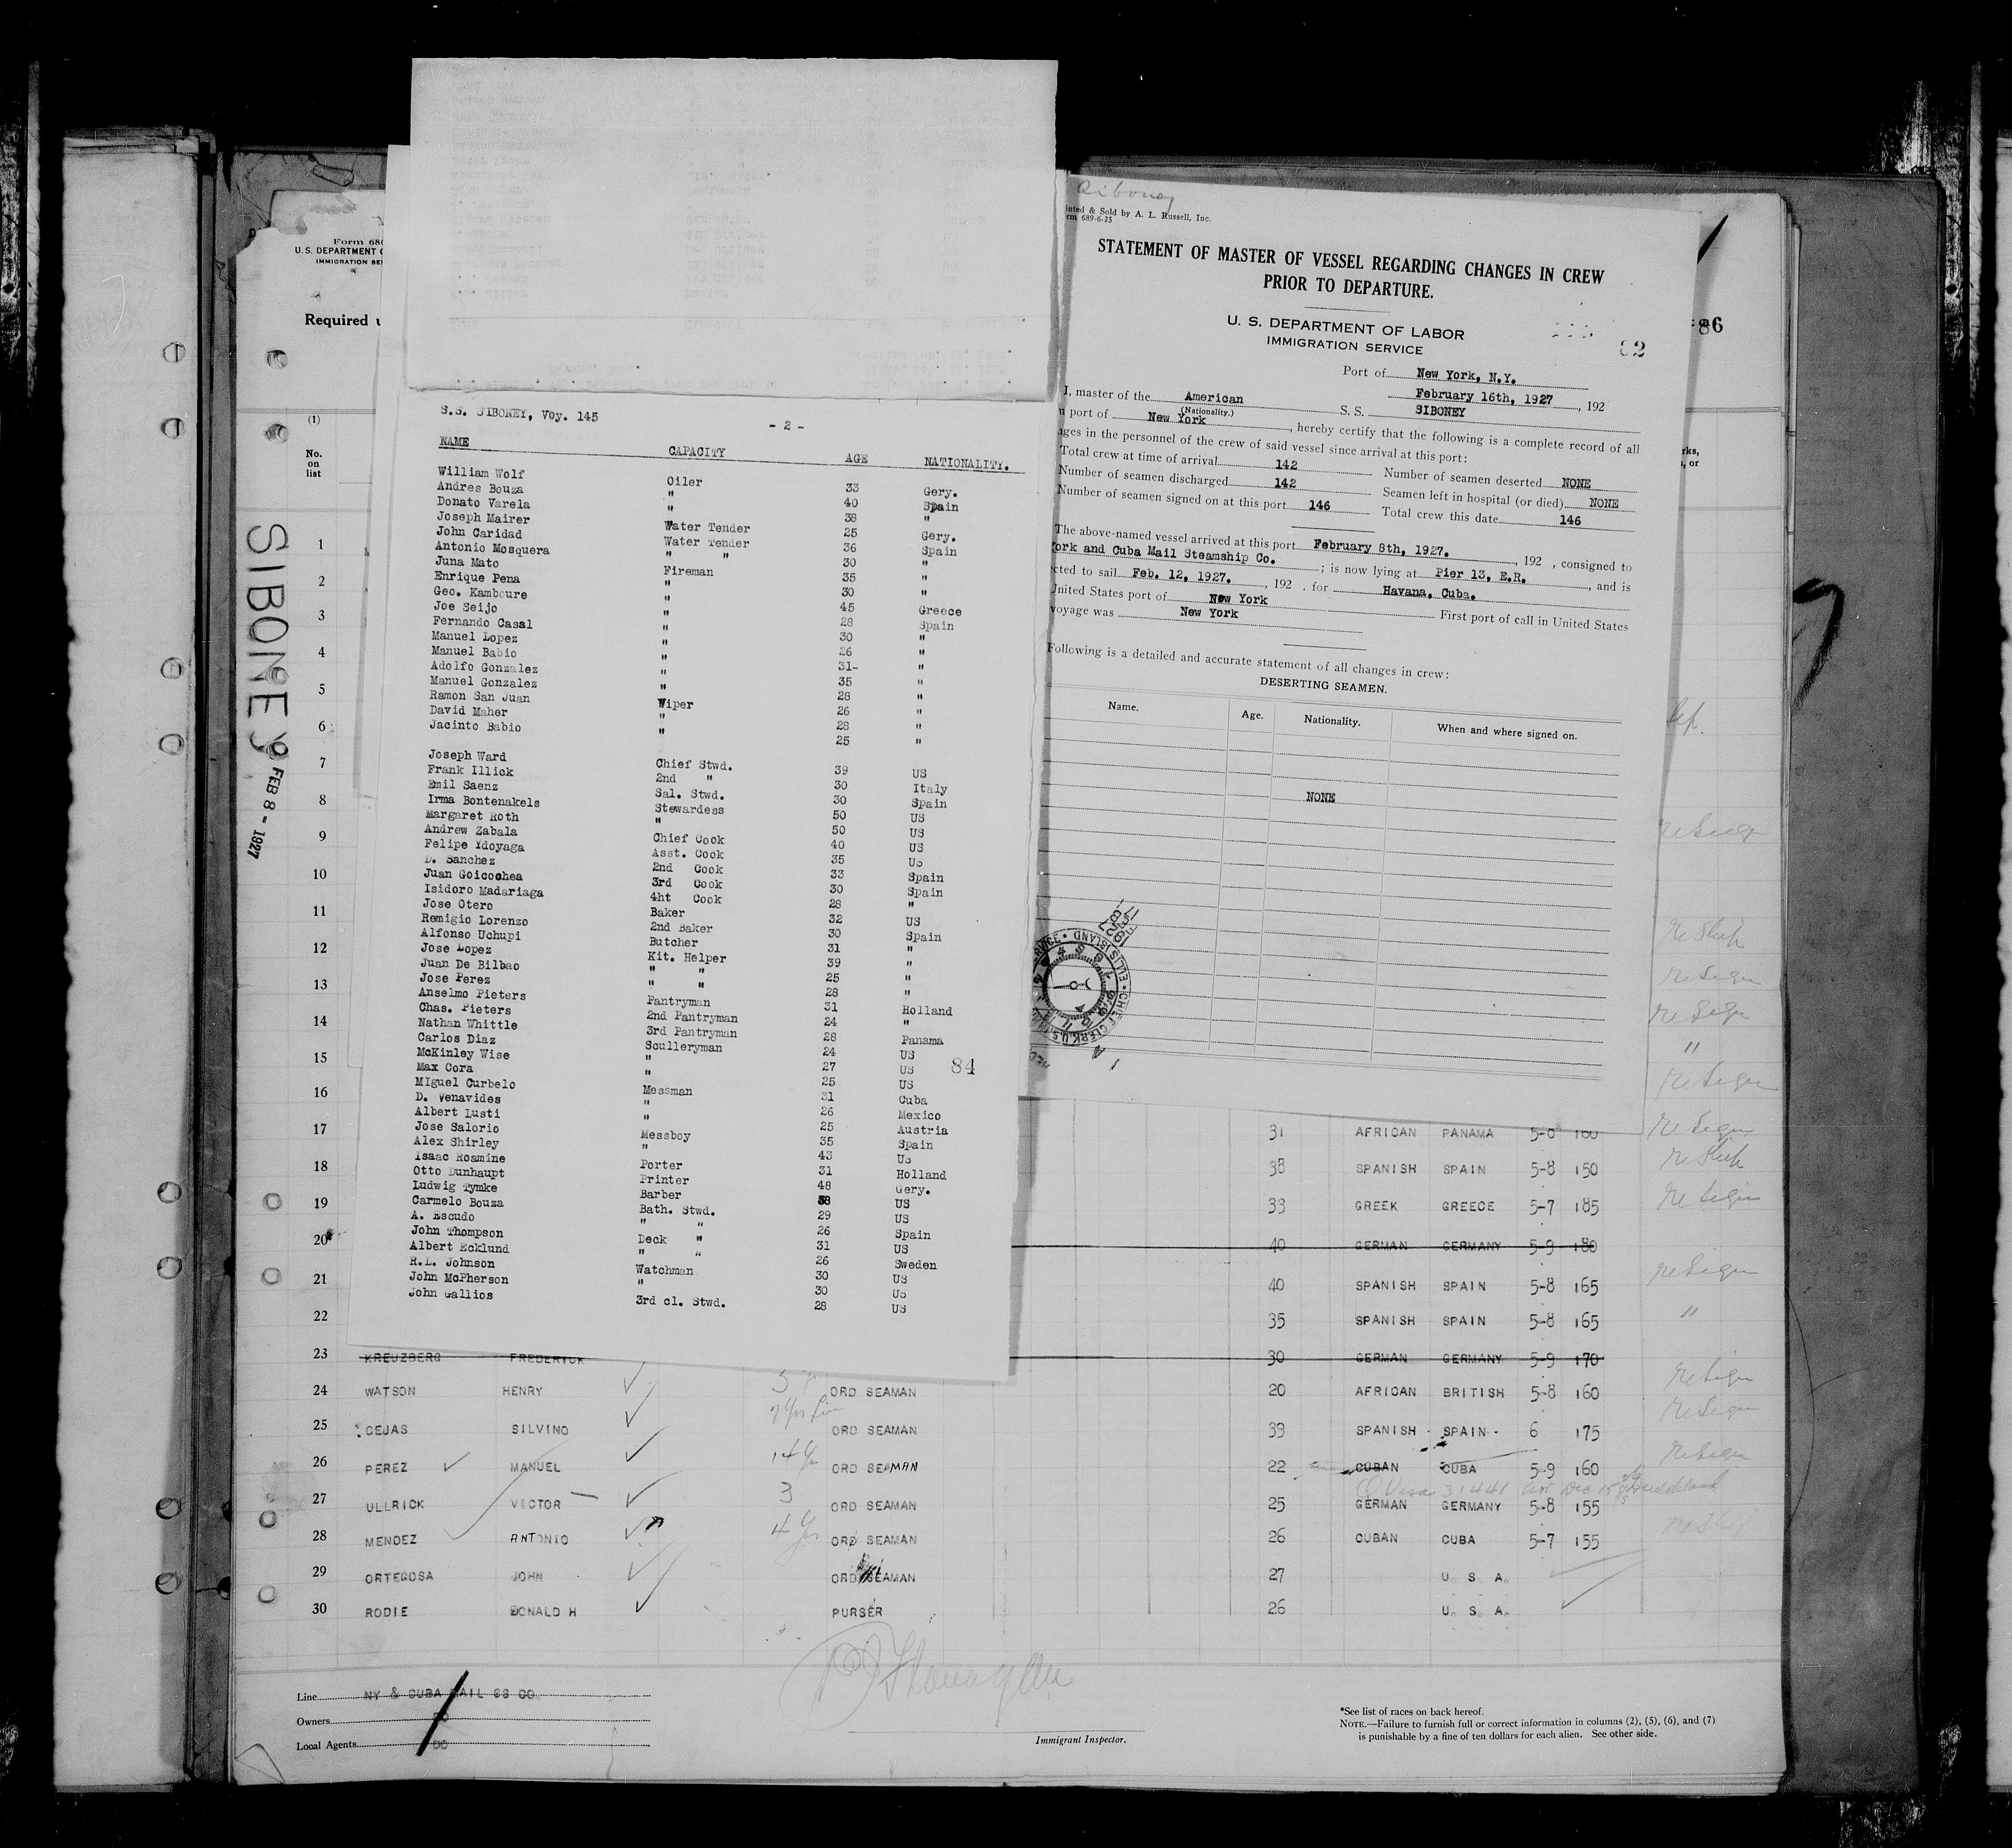 Form 680
U.S. DEPARTMENT O
IMMIGRATION SE
Required u
(1)
No.
on
list
SIBONEY
FEB 8 - 1927
S.S. SIBONEY, Voy. 145
- 2 -
NAME CAPACITY AGE NATIONALITY.
William Wolf Oiler 33 Gery.
Andres Bouza " 40 Spain
Donato Varela " 38 "
Joseph Mairer Water Tender 25 Gery.
John Caridad Water Tender 36 Spain
Antonio Mosquera " " 30 "
Juna Mato Fireman 35 "
Enrique Pena " 30 "
Geo. Kamboure " 45 Greece
Joe Seijo " 28 Spain
Fernando Casal " 30 "
Manuel Lopez " 26 "
Manuel Babio " 31- "
Adolfo Gonzalez " 35 "
Manuel Gonzalez " 28 "
Ramon San Juan Wiper 26 "
David Maher " 28 "
Jacinto Babio " 25 "
Joseph Ward Chief Stwd. 39 US
Frank Illick 2nd " 30 Italy
Emil Saenz Sal. Stwd. 30 Spain
Irma Bontenakels Stewardess 50 US
Margaret Roth " 50 US
Andrew Zabala Chief Cook 40 US
Felipe Ydoyaga Asst. Cook 35 US
D. Sanchez 2nd Cook 33 Spain
Juan Goicochea 3rd Cook 30 Spain
Isidoro Madariaga 4ht Cook 28 "
Jose Otero Baker 32 US
Remigio Lorenzo 2nd Baker 30 Spain
Alfonso Uchupi Butcher 31 "
Jose Lopez Kit. Helper 39 "
Juan De Bilbao " " 25 "
Jose Perez " " 28 "
Anselmo Pieters Pantryman 31 Holland
Chas. Pieters 2nd Pantryman 24 "
Nathan Whittle 3rd Pantryman 28 Panama
Carlos Diaz Sculleryman 24 US
McKinley Wise " 27 US 84
Max Cora " 25 US
MIguel Curbelo Messman 31 Cuba
D. Venavides " 26 Mexico
Albert Lusti " 25 Austria
Jose Salorio Messboy 35 Spain
Alex Shirley " 43 US
Isaac Roamine Porter 31 Holland
Otto Dunhaupt Printer 48 Gery.
Ludwig Tymke Barber 38 US
Carmelo Bouza Bath. Stwd. 29 US
A. Escudo " " 26 Spain
John Thompson Deck " 31 US
Albert Ecklund " " 26 Sweden
R.L. Johnson Watchman 30 US
John McPherson " 30 US
John Gallios 3rd cl. Stwd. 28 US
Siboney
inted & Sold by A. L. Russell, Inc.
rm 689-6-25
STATEMENT OF MASTER OF VESSEL REGARDING CHANGES IN CREW
PRIOR TO DEPARTURE.
U. S. DEPARTMENT OF LABOR
IMMIGRATION SERVICE
82
86
Port of New York, N.Y.
February 16th, 1927, 192
I, master of the American S. S. SIBONEY
(Nationality.)
n port of New York, hereby certify that the following is a complete record of all
ges in the personnel of the crew of said vessel since arrival at this port:
Total crew at time of arrival 142 Number of seamen deserted NONE
Number of seamen discharged 142 Seamen left in hospital (or died) NONE
Number of seamen signed on at this port 146 Total crew this date 146
The above-named vessel arrived at this port February 8th, 1927. , 192 , consigned to
ork and Cuba Mail Steamship Co. ; is now lying at Pier 13, E.R. , and is
cted to sail Feb. 12, 1927. , 192 . for Havana, Cuba.
United States port of New York First port of call in United States
voyage was New York
Following is a detailed and accurate statement of all changes in crew:
DESERTING SEAMEN.
Name. Age. Nationality. When and where signed on.
NONE
ELLIS ISLAND CHIEF CLERK, U.S.
1
2
3
4
5
6
7
8
9
10
11
12
13
14
15
16
17 31 AFRICAN PANAMA 5-8 160 Resign
18 38 SPANISH SPAIN 5-8 150 Reship
19 33 GREEK GREECE 5-7 185 Resign
20 40 GERMAN GERMANY 5-9 180
21 40 SPANISH SPAIN 5-8 165 Resign
22 35 SPANISH SPAIN 5-8 165 "
23 KREUZBERG FREDERICK 30 GERMAN GERMANY 5-9 170
24 WATSON HENRY ORD SEAMAN 20 AFRICAN BRITISH 5-8 160 Resign
25 CEJAS SILVINO ORD SEAMAN 39 SPANISH SPAIN 6 175 Resign
26 PEREZ MANUEL 14 yr ORD SEAMAN 22 CUBAN CUBA 5-9 160 Resign
27 ULLRICK VICTOR 3 ORD SEAMAN 25 GERMAN GERMANY 5-8 155
28 MENDEZ ANTONIO 4 yrs ORD SEAMAN 26 CUBAN CUBA 5-7 155
29 ORTEGOSA JOHN ORD SEAMAN 27 U. S. A.
30 RODIE DONALD H PURSER 26 U. S. A.
Line NY & CUBA MAIL SS CO
Owners DO
Local Agents DO
Immigrant Inspector.
*See list of races on back hereof.
NOTE.—Failure to furnish full or correct information in columns (2), (5), (6), and (7)
is punishable by a fine of ten dollars for each alien. See other side.